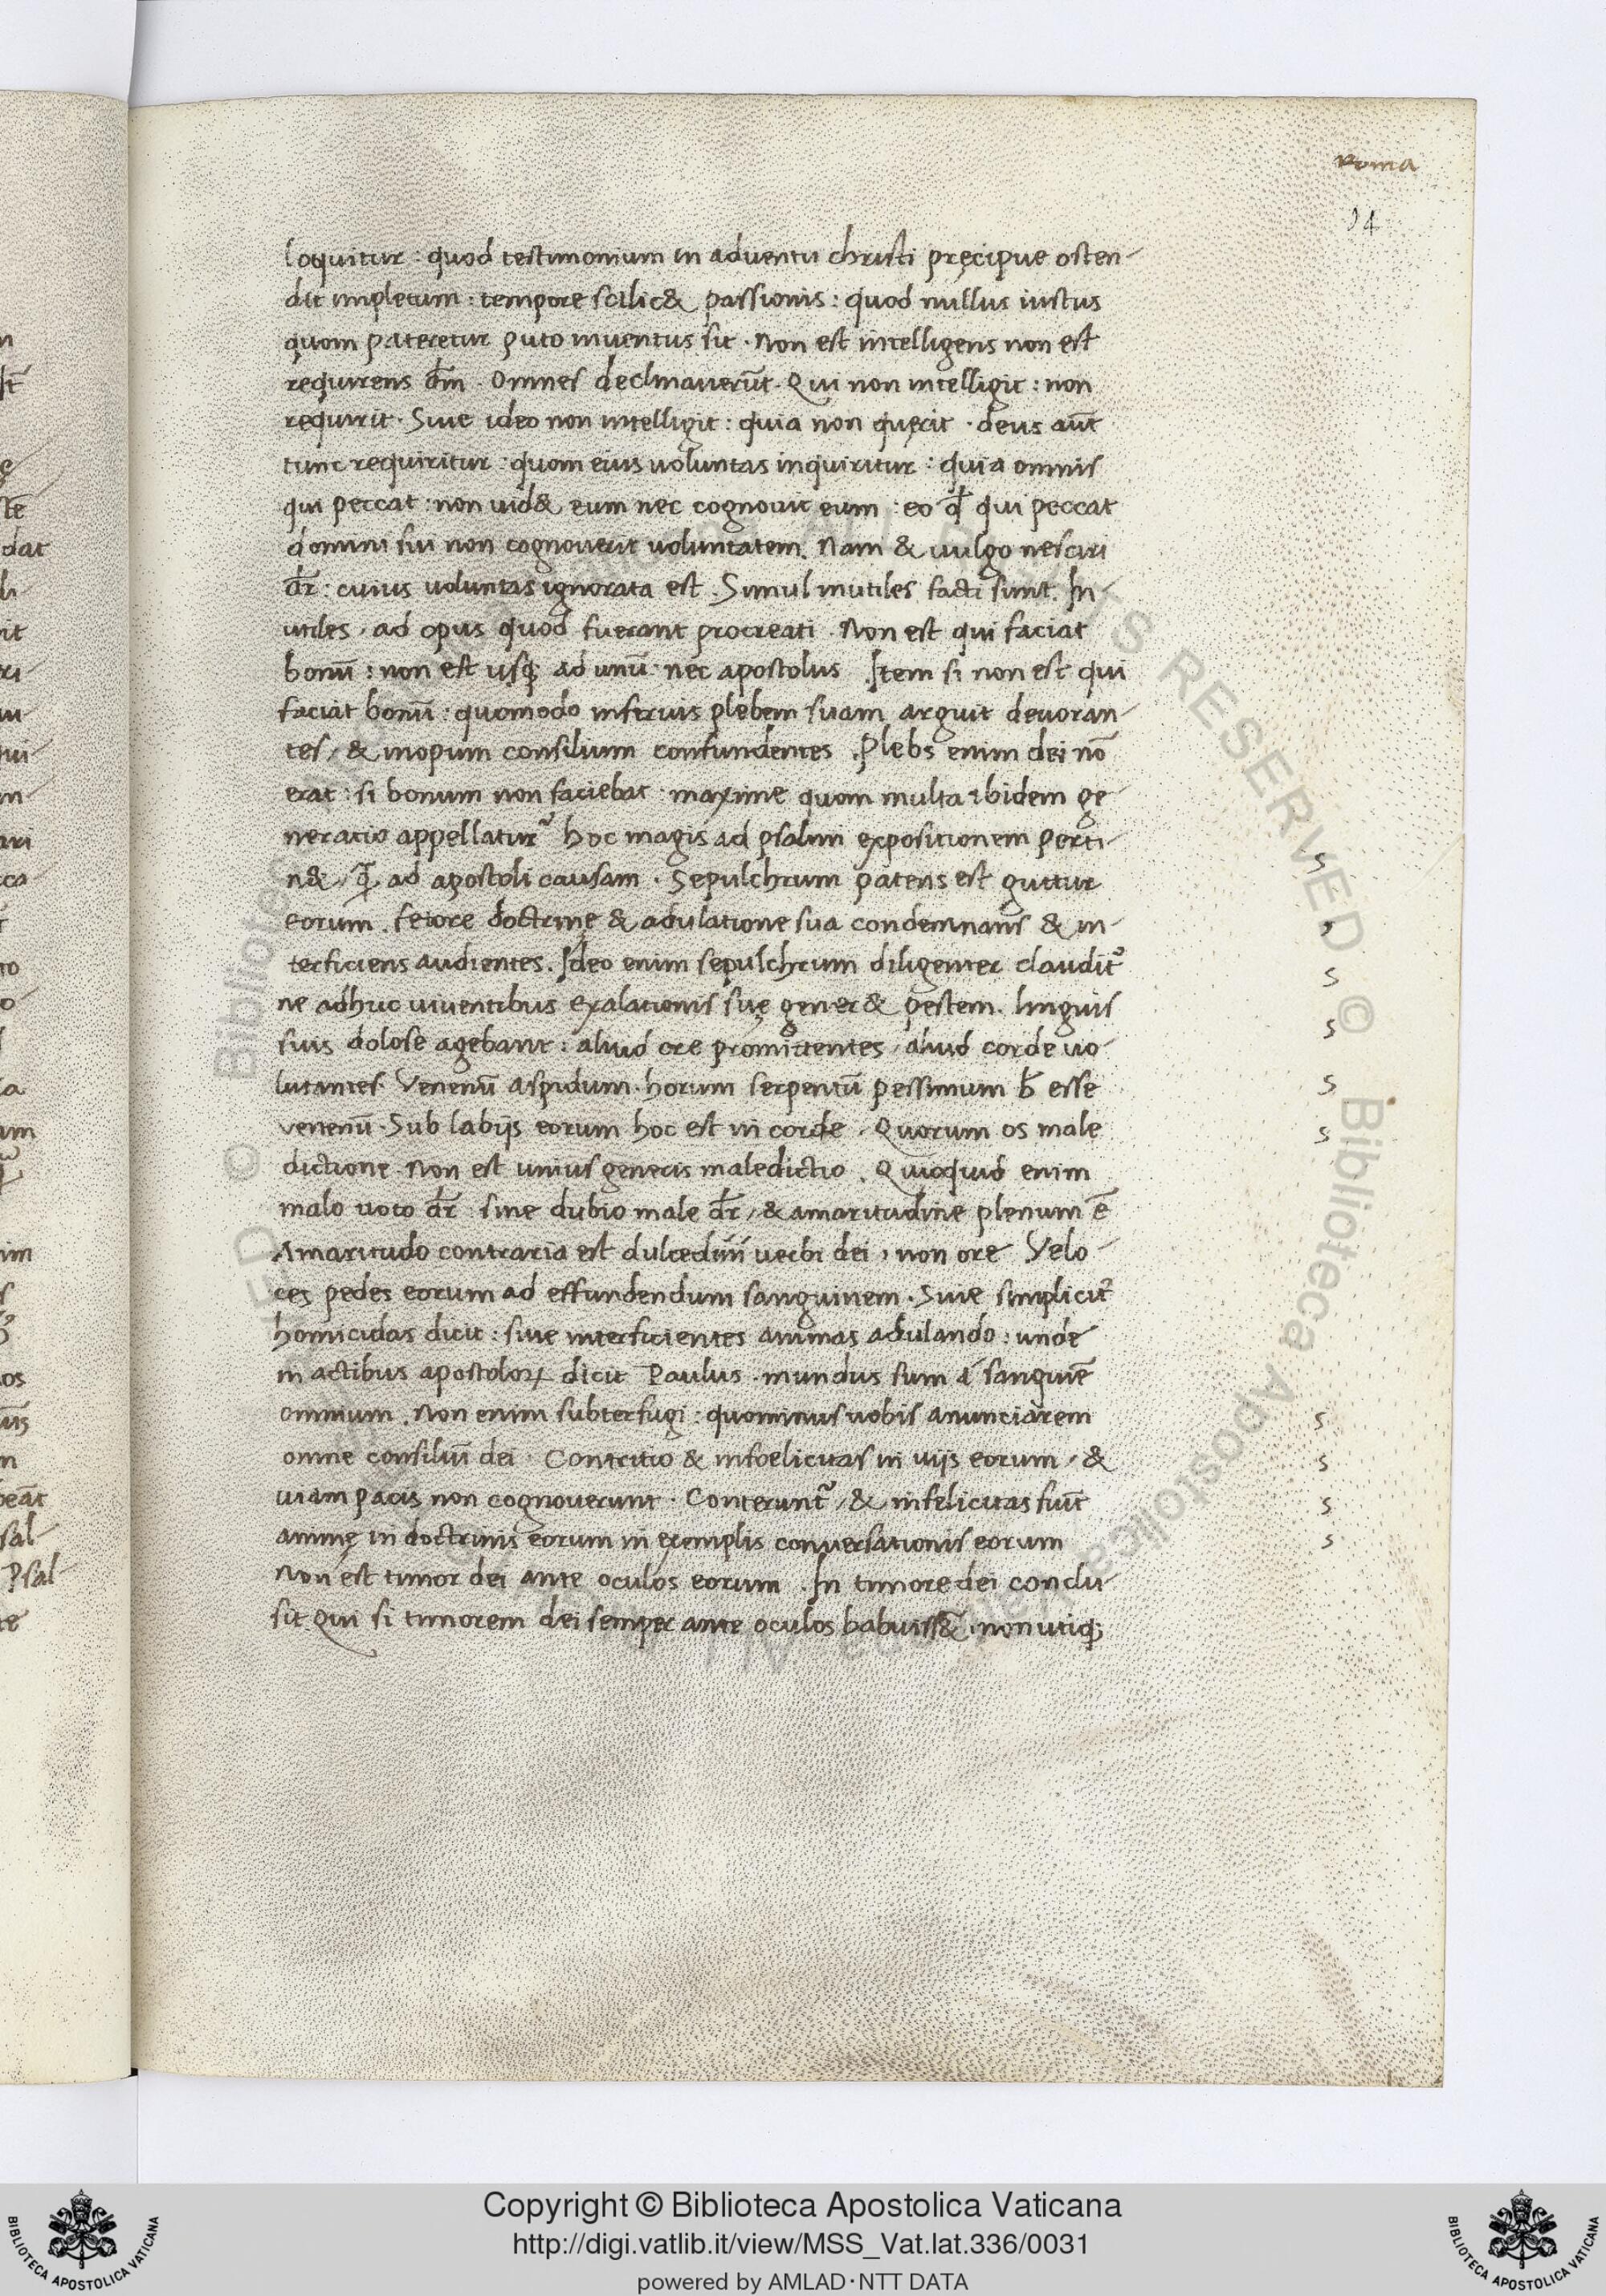 Roma
14
loquitur : quod testimonium in aduentu christi pręcipue osten-
dit impletum : tempore scilic& passionis : quod nullus iustus
quom pateretur puto inuentus sit . Non est intelligens non est
requirens dm̄ . Omnes declinauerūt . Qui non intelligit : non
requirit . Siue ideo non intelligit : quia non quęrit . deus aūt
tunc requiritur : quom eius voluntas inquiritur : quia omnis
qui peccat : non uid& eum nec cognouit eum : eo qđ qui peccat
domini sui non cognouerit voluntatem . Nam & uulgo nesciri
dr̄ : cuius voluntas ignorata est . Simul inutiles facti sunt . In-
utiles , ad opus quod fuerant procreati . Non est qui faciat
bonū : non est usq; ad unū : nec apostolus . Item si non est qui
faciat bonū : quomodo inferius plebem suam arguit deuoran-
tes / & inopum consilium confundentes . Plebs enim dei nō
erat : si bonum non faciebat : maxime quom multa ibidem ge
neratio appellatur᷑ hoc magis ad psalmi expositionem perti-
n& / q̄ ad apostoli causam . Sepulchrum patens est guttur
eorum . fetore doctrinę & adulatione sua condemnans & in-
terficiens audientes . Ideo enim sepulchrum diligenter claudit᷑
ne adhuc uiuentibus exalationis suę gener& pestem . linguis
suis dolose agebant : aliud ore promittentes / aliud corde uo-
lutantes . Venenū aspidum . horum serpentū pessimum ƀ esse
venenū . Sub labijs eorum hoc est in corde . Quorum os male
dictione . Non est unius generis maledictio . Quicquid enim
malo uoto dr̄ : sine dubio male dr̄ , & amaritudine plenum ē
Amaritudo contraria est dulcedini uerbi dei , non ore Velo-
ces pedes eorum ad effundendum sanguinem . Siue simplicit᷑
homicidas dicit : siue interficientes animas adulando : unde
in actibus apostoloꝝ dicit Paulus . mundus sum á sanguinē
omnium . Non enim subterfugi : quominus uobis anunciarem
omne consiliū dei . Contritio & infoelicitas in uijs eorum , &
uiam pacis non cognouerunt . Conterunt᷑ / & infelicitas fuit
animę in doctrinis eorum in exemplis conuersationis eorum
Non est timor dei ante oculos eorum . In timore dei conclu-
sit qui si timorem dei semper ante oculos habuiss& . non utiq;
Copyright © Biblioteca Apostolica Vaticana
http://digi.vatlib.it/view/MSS_Vat.lat.336/0031
powered by AMLAD·NTT DATA